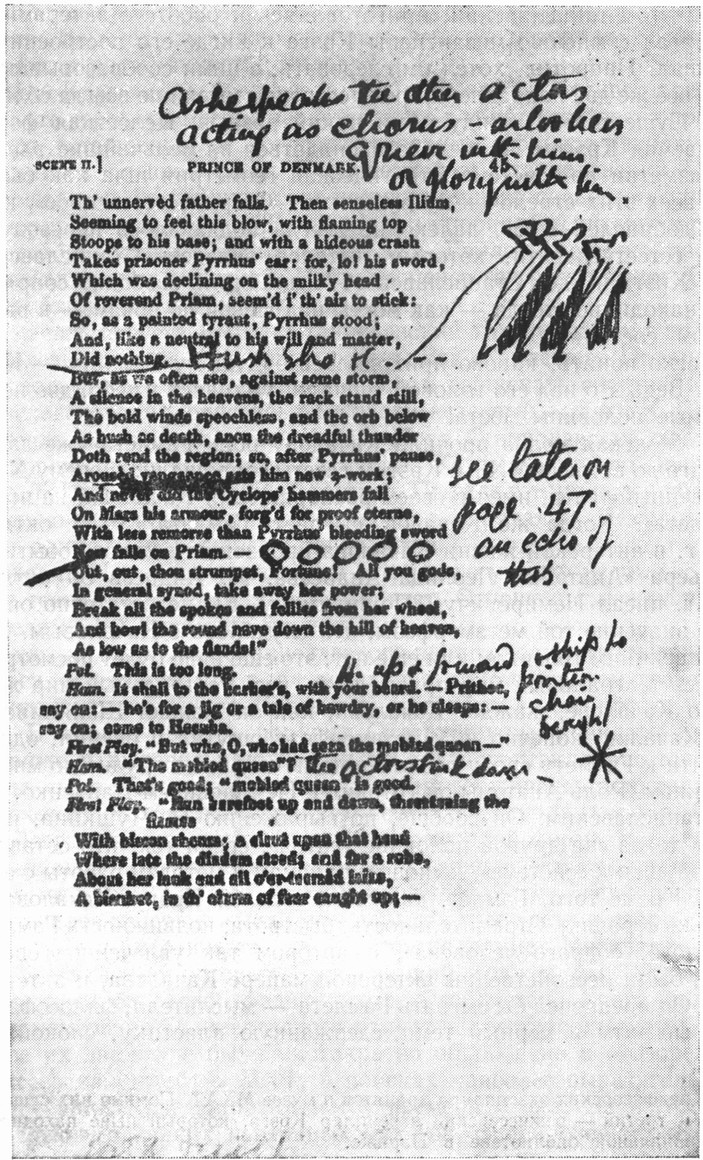 As he speaks the other actors
acting as chorus - also
Quiver with him
or glory with him
SCENE II.] PRINCE OF DENMARK. 45
Th' unnervèd father falls. Then senseless Ilium,
Seeming to feel this blow, with flaming top
Stoops to his base; and with a hideous crash
Takes prisoner Pyrrhus' ear: for, lo! his sword,
Which was declining on the milky head
Of reverend Priam, seem'd i' th' air to stick:
So, as a painted tyrant, Pyrrhus stood;
And, like a neutral to his will and matter,
Did nothing.
But, as we often see, against some storm,
A silence in the heavens, the rack stand still,
The bold winds speechless, and the orb below
As hush as death, anon the dreadful thunder
Doth rend the region; so, after Pyrrhus' pause,
Arousèd vengeance sets him new a-work;
And never did the Cyclops' hammers fall
On Mars his armour, forg'd for proof eterne,
With less remorse than Pyrrhus' bleeding sword
Now falls on Priam.
Out, out, thou strumpet, Fortune! All you gods,
In general synod, take away her power;
Break all the spokes and fellies from her wheel,
And bowl the round nave down the hill of heaven,
As low as to the fiends!"
see later on
page 47.
an echo of
this
Pol. This is too long.
Ham. It shall to the barber's, with your beard. — Prithee,
say on: — he's for a jig or a tale of bawdry, or he sleeps: —
say on; come to Hecuba.
First Play. "But who, O, who had seen the mobled queen—"
Ham. "The mobled queen"?
Pol. That's good; "mobled queen" is good.
First Play. "Run barefoot up and down, threatening the
flames
With bisson rheum; a clout upon that head
Where late the diadem stood; and for a robe,
About her lank and all o'er-teemèd loins,
A blanket, in th' alarm of fear caught up;—
H. up forward
the actors